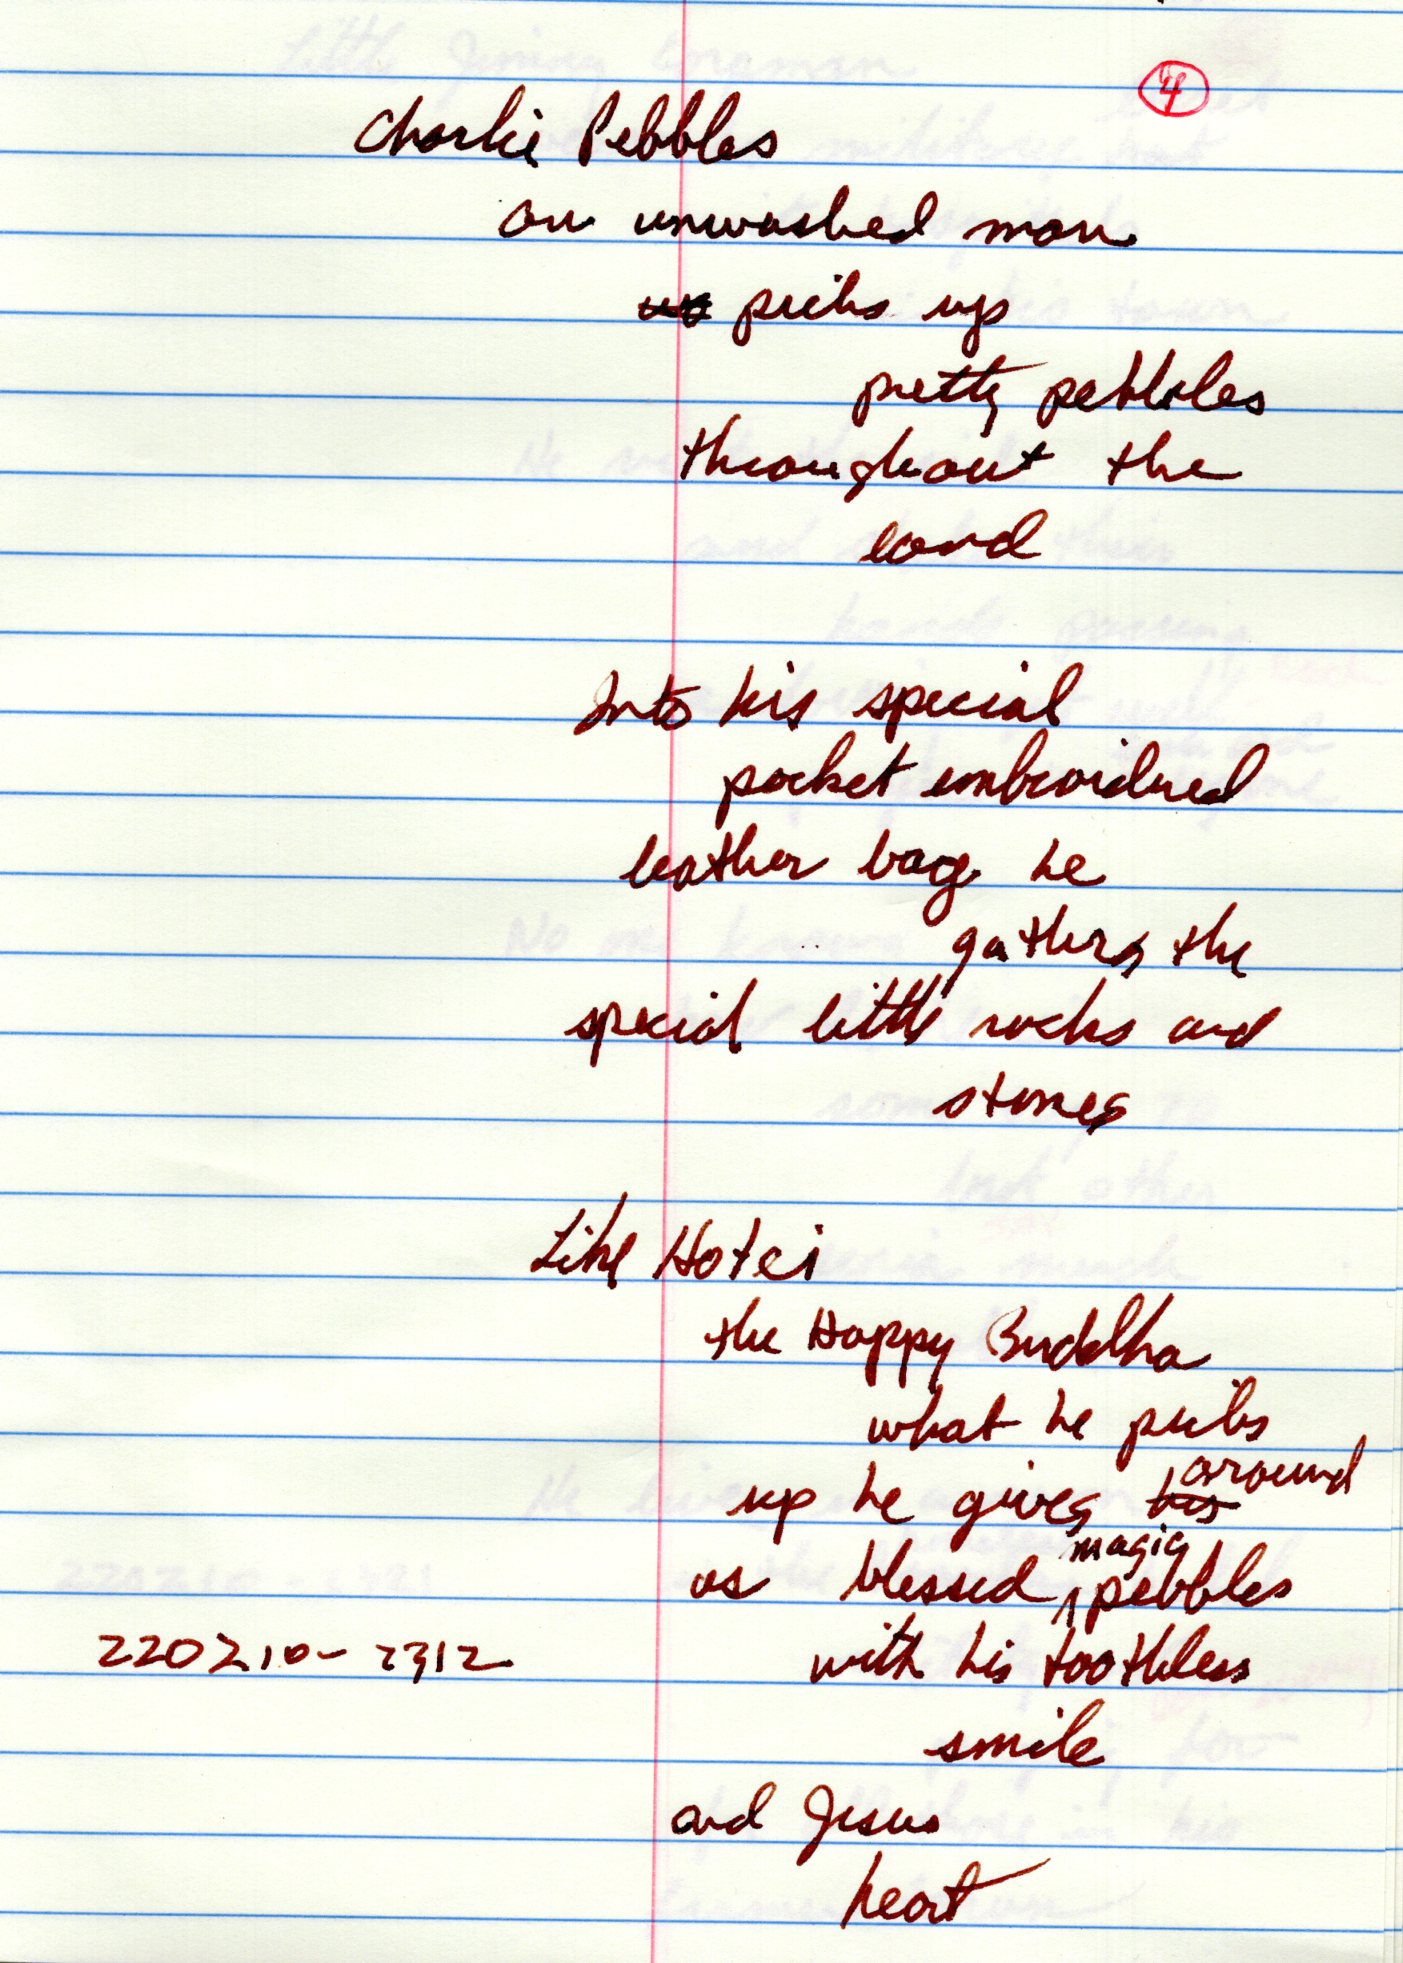 4
Charlie Pebbles
an unwashed man
picks up
pretty pebbles
throughout the
land
Into his special
pocket embroidured
leather bag he
gathers the
special little rocks and
stones
Like Hotei
the Happy Buddha
what he picks
up he gives around
as blessed magic pebbles
220210-2312
with his toothless
smile
and Jesus
heart